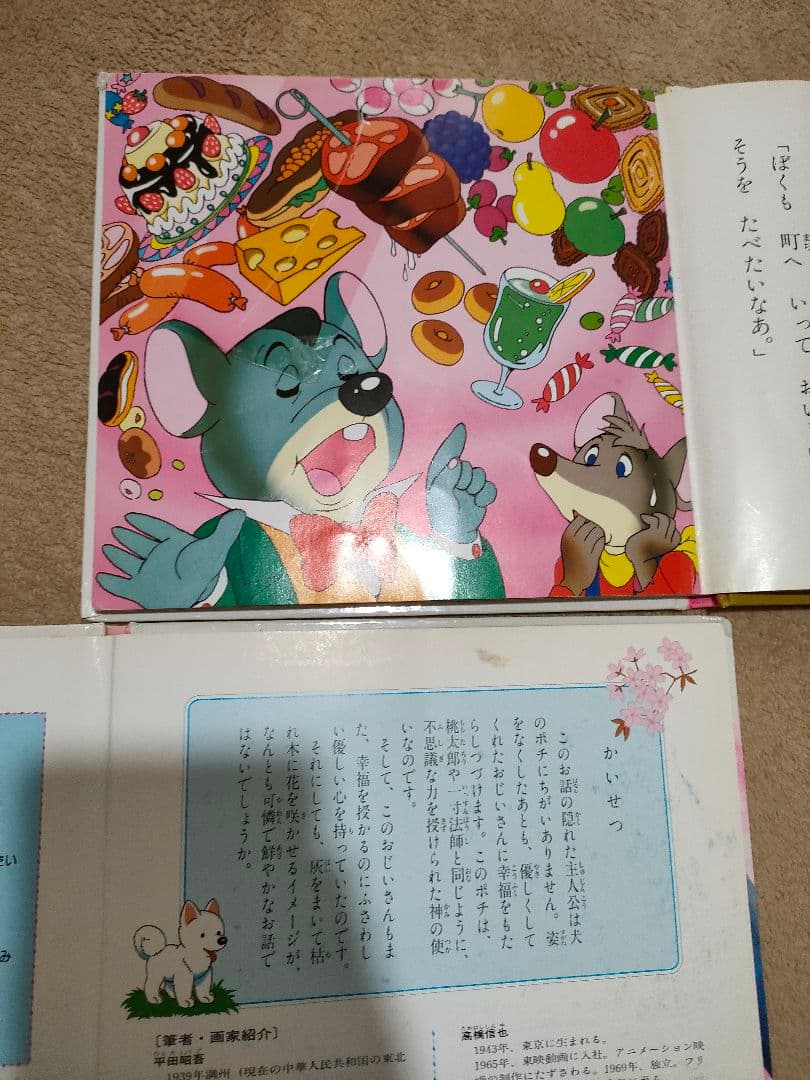 「ぼくも 町へ いって
そうを たべたいなあ。」
かいせつ
このお話の隠れた主人公は犬
のポチにちがいありません。姿
をなくしたあとも、優しくして
くれたおじいさんに幸福をもた
らしつづけます。このポチは、
桃太郎や一寸法師と同じように、
不思議な力を授けられた神の使
いなのです。
そして、このおじいさんもま
た、幸福を授かるのにふさわし
い優しい心を持っていたのです。
それにしても、灰をまいて枯
れ木に花を咲かせるイメージが、
なんとも可憐で鮮やかなお話で
はないでしょうか。
い
み
[筆者・画家紹介]
平田昭吾
1939年満州(現在の中華人民共和国の東北
高橋信也
1943年、東京に生まれる。
1965年、東映動画に入社。アニメーション映
画の制作にたずさわる。1969年、独立。フリ